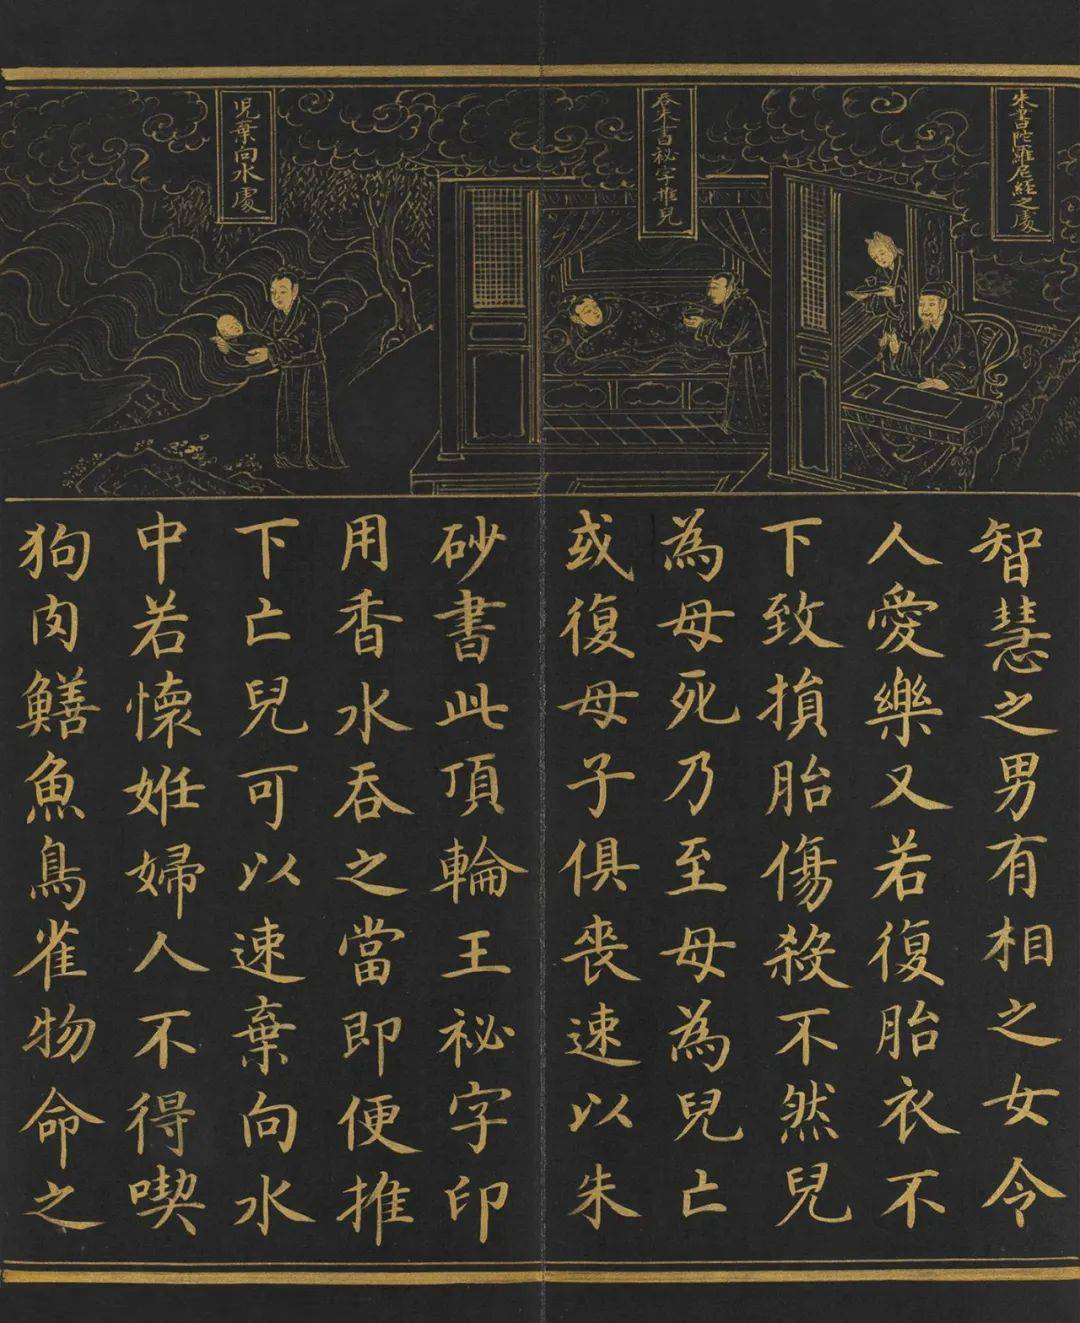 朱書陀羅尼經之處
吞朱書祕字推兒
兒棄向水處
智慧之男有相之女令
人愛樂又若復胎衣不
下致損胎傷殺不然兒
為母死乃至母為兒亡
或復母子俱喪速以朱
砂書此頂輪王祕字印
用香水吞之當即便推
下亡兒可以速棄向水
中若懷姙婦人不得喫
狗肉鱔魚鳥雀物命之